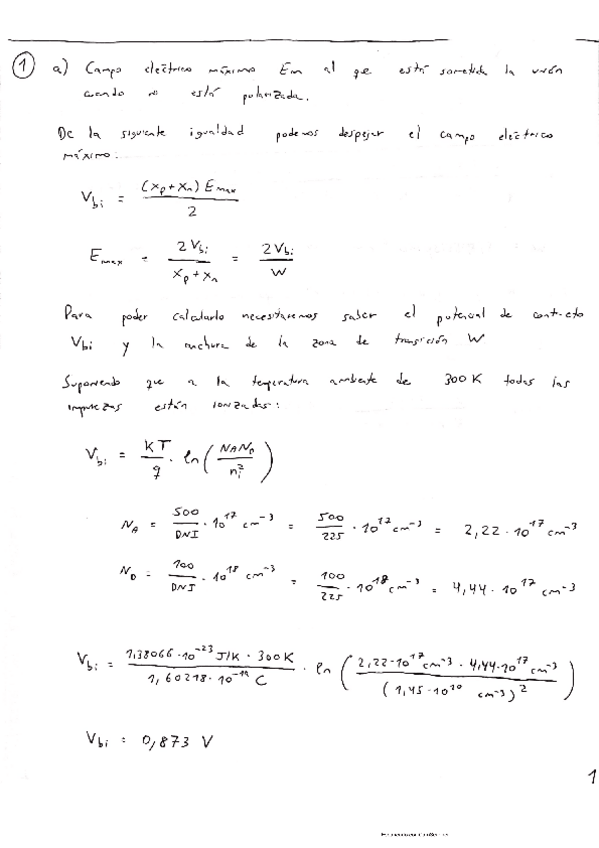 ① a) Campo eléctrico máximo Em al que está sometida la unión
cuando no está polarizada.
De la siguiente igualdad podemos despejar el campo eléctrico
máximo:
V_bi = (x_p + x_n) E_max / 2
E_max = 2 V_bi / (x_p + x_n) = 2 V_bi / W
Para poder calcularlo necesitaremos saber el potencial de contacto
V_bi y la anchura de la zona de transición W
Suponiendo que a la temperatura ambiente de 300 K todas las
impurezas están ionizadas:
V_bi = KT / q · ln ( N_A N_D / n_i^2 )
N_A = 500 / DNI · 10^17 cm^-3 = 500 / 225 · 10^17 cm^-3 = 2,22 · 10^17 cm^-3
N_D = 100 / DNI · 10^18 cm^-3 = 100 / 225 · 10^18 cm^-3 = 4,44 · 10^17 cm^-3
V_bi = 1,38066 · 10^-23 J/K · 300 K / 1,60218 · 10^-19 C · ln ( 2,22 · 10^17 cm^-3 · 4,44 · 10^17 cm^-3 / (1,45 · 10^10 cm^-3)^2 )
V_bi = 0,873 V
1